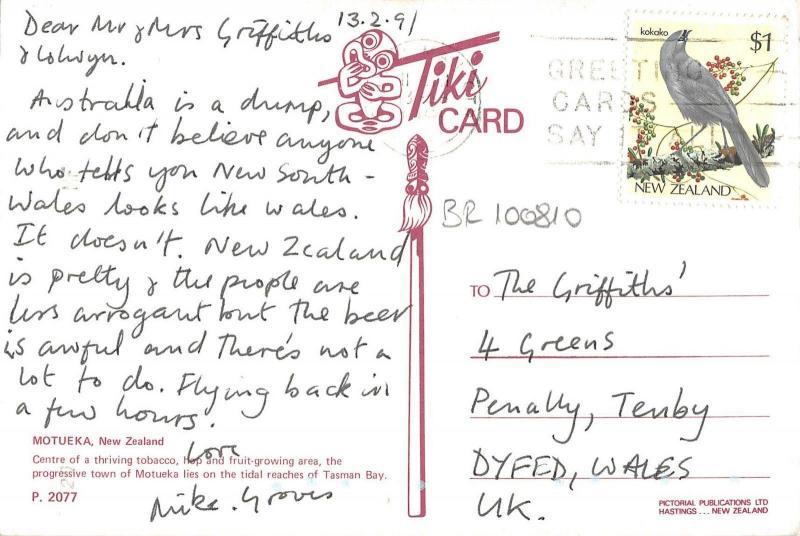 13.2.91
Dear Mr & Mrs Griffiths
& Colwyn.
Australia is a dump,
and don't believe anyone
who tells you New South-
Wales looks like Wales.
It doesn't. New Zealand
is pretty & the people are
less arrogant but the beer
is awful and there's not a
lot to do. Flying back in
a few hours.
Love
Mike. Groves
MOTUEKA, New Zealand
Centre of a thriving tobacco, hop and fruit-growing area, the
progressive town of Motueka lies on the tidal reaches of Tasman Bay.
P. 2077
Tiki
CARD
GREETING
CARDS
SAY
kokako
$1
NEW ZEALAND
BR 100810
TO The Griffiths'
4 Greens
Penally, Tenby
DYFED, WALES
UK.
PICTORIAL PUBLICATIONS LTD
HASTINGS ... NEW ZEALAND